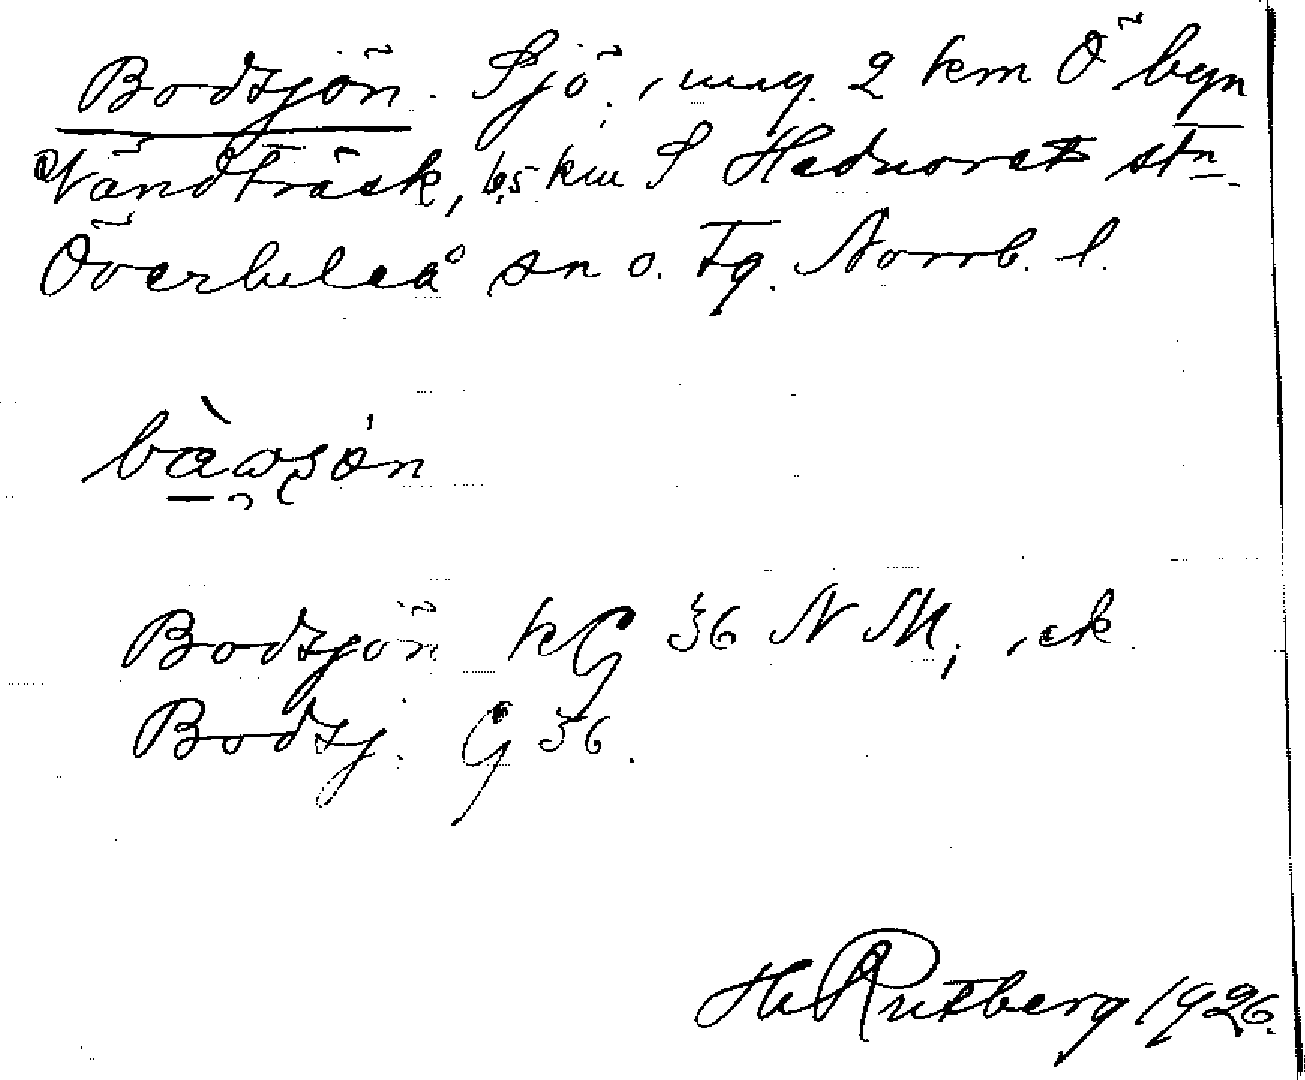 Bodsjön. Sjö, ung. 2 km Ö byn
Vändträsk, 6,5 km S Hednoret stn
Överluleå sn o. tg. Norrb. l.
bàωʂón
Bodsjön kG 36 N M, ek.
Bodsj. G 36.
H Rutberg 1926.